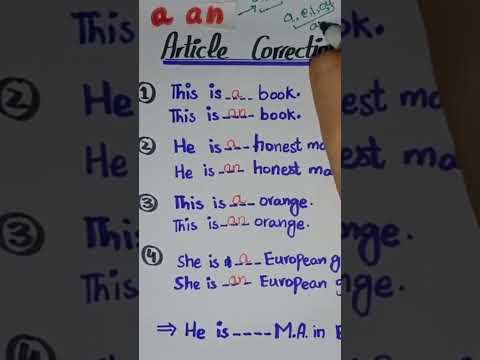 a an
a, e, i, o, u
Article Correction
1 This is a book.
This is an book.
2 He is a honest
He is an honest
3 This is a orange.
This is an orange.
4 She is a European
She is an European
⇒ He is ---- M.A. in